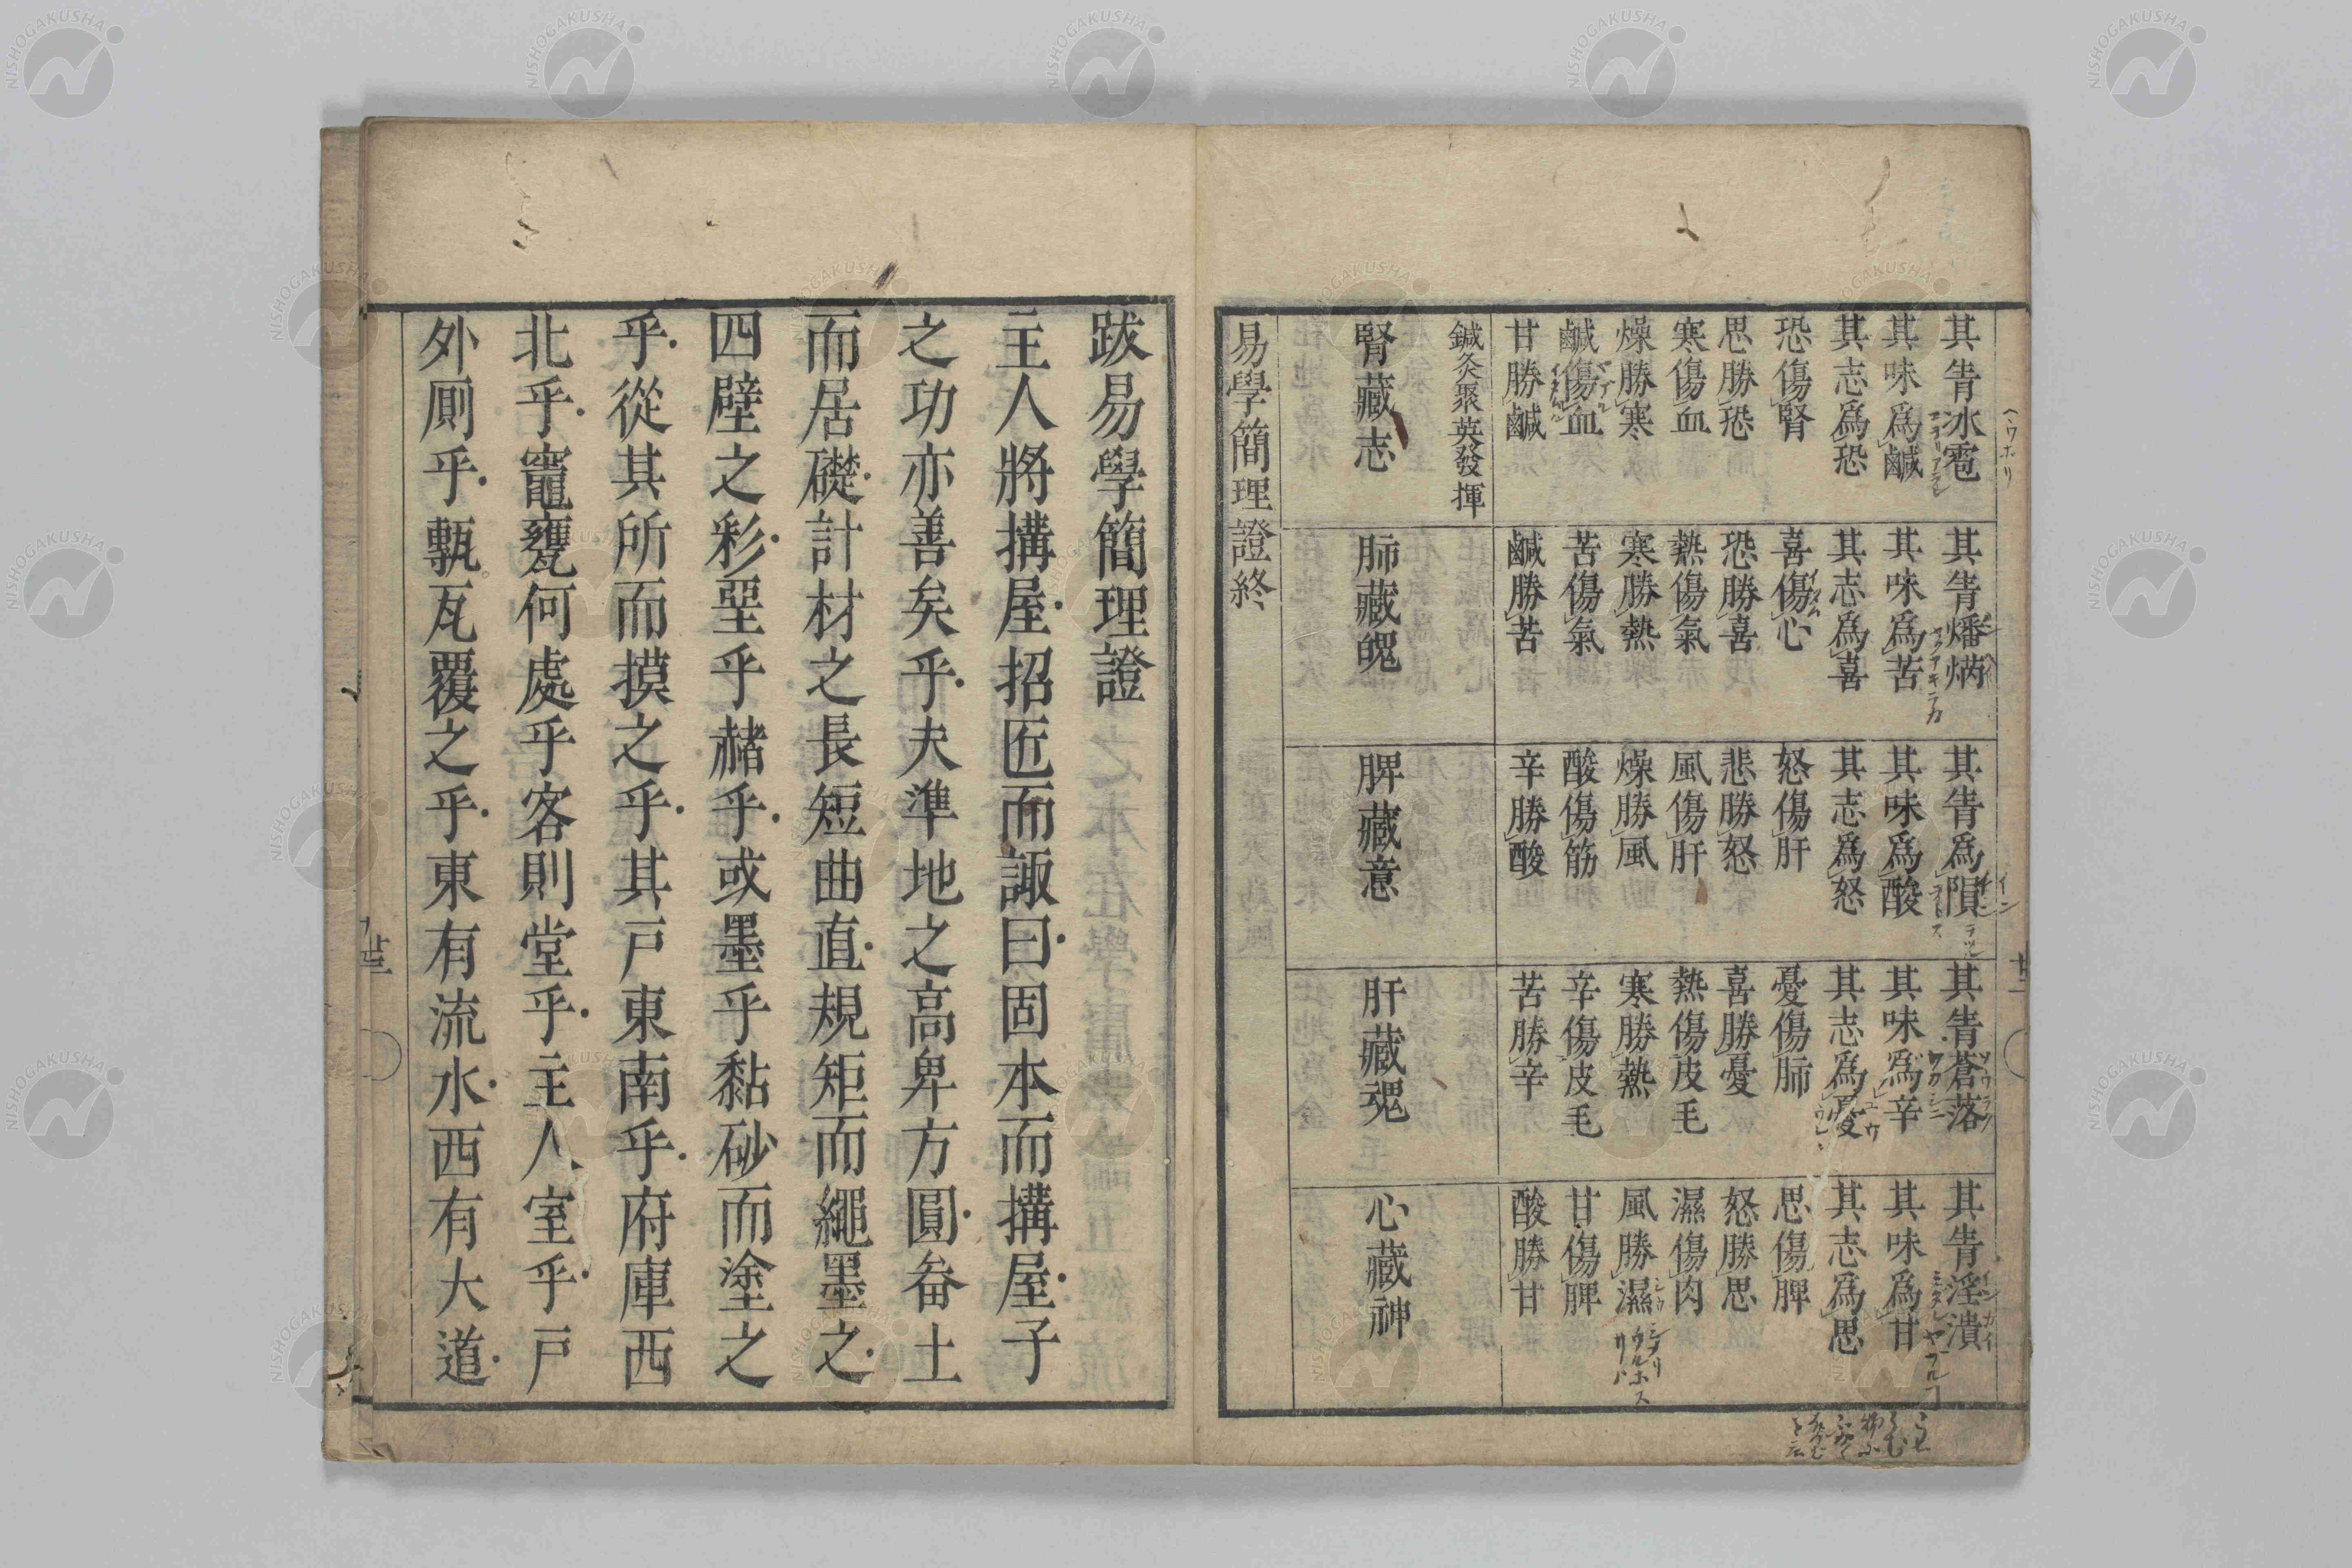 其眚冰雹 其眚燔焫 其眚爲隕 其眚蒼落 其眚淫潰
其味爲鹹 其味爲苦 其味爲酸 其味爲辛 其味爲甘
其志爲恐 其志爲喜 其志爲怒 其志爲憂 其志爲思
恐傷腎 喜傷心 怒傷肝 憂傷肺 思傷脾
思勝恐 恐勝喜 悲勝怒 喜勝憂 怒勝思
寒傷血 熱傷氣 風傷肝 熱傷皮毛 濕傷肉
燥勝寒 寒勝熱 燥勝風 寒勝熱 風勝濕
鹹傷血 苦傷氣 酸傷筋 辛傷皮毛 甘傷脾
甘勝鹹 鹹勝苦 辛勝酸 苦勝辛 酸勝甘
鍼灸聚英發揮
腎藏志 肺藏魄 脾藏意 肝藏魂 心藏神
易學簡理證終
跋易學簡理證
主人將搆屋招匠而諏曰固本而搆屋子
之功亦善矣乎夫準地之高卑方圓畚土
而居礎計材之長短曲直規矩而繩墨之
四壁之彩堊乎赭乎或墨乎黏砂而塗之
乎從其所而摸之乎其戸東南乎府庫西
北乎竈甕何處乎客則堂乎主人室乎戸
外厠乎甎瓦覆之乎東有流水西有大道
NISHOGAKUSHA